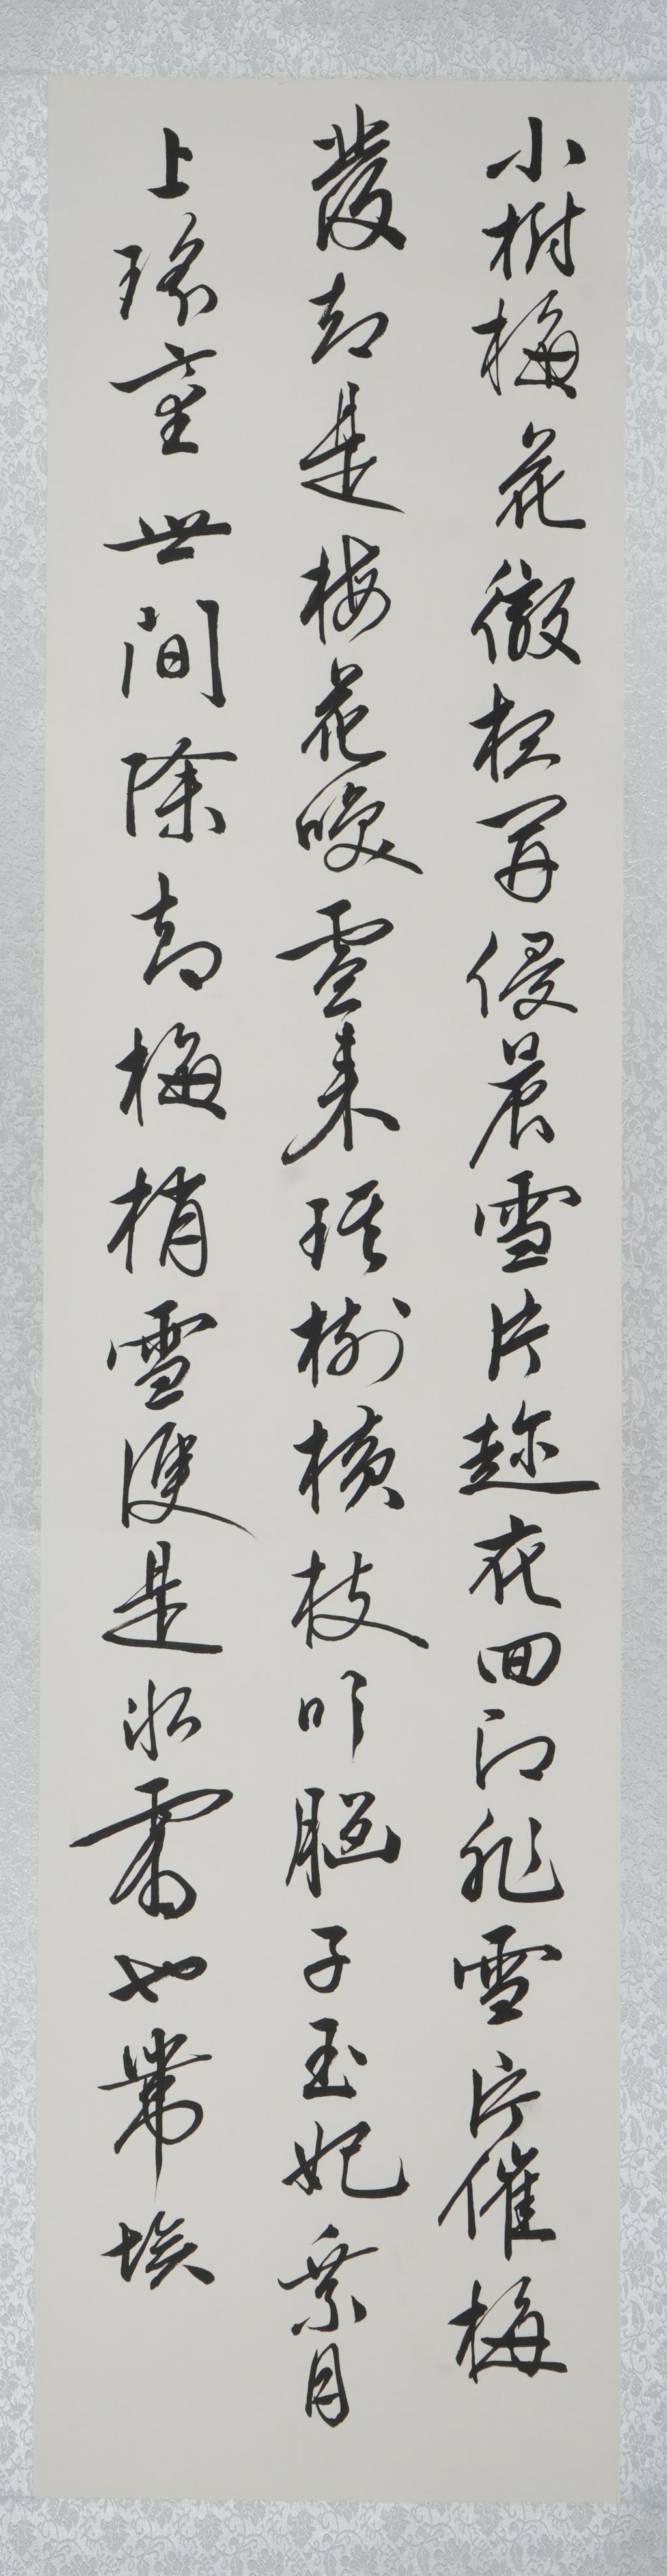 小樹梅花徹夜開侵晨雪片趂花回即非雪片催梅
發却是梅花喚雪來琪樹橫枝吹腦子玉妃乘月
上瑤臺世間除却梅梢雪便是冰霜也帶埃